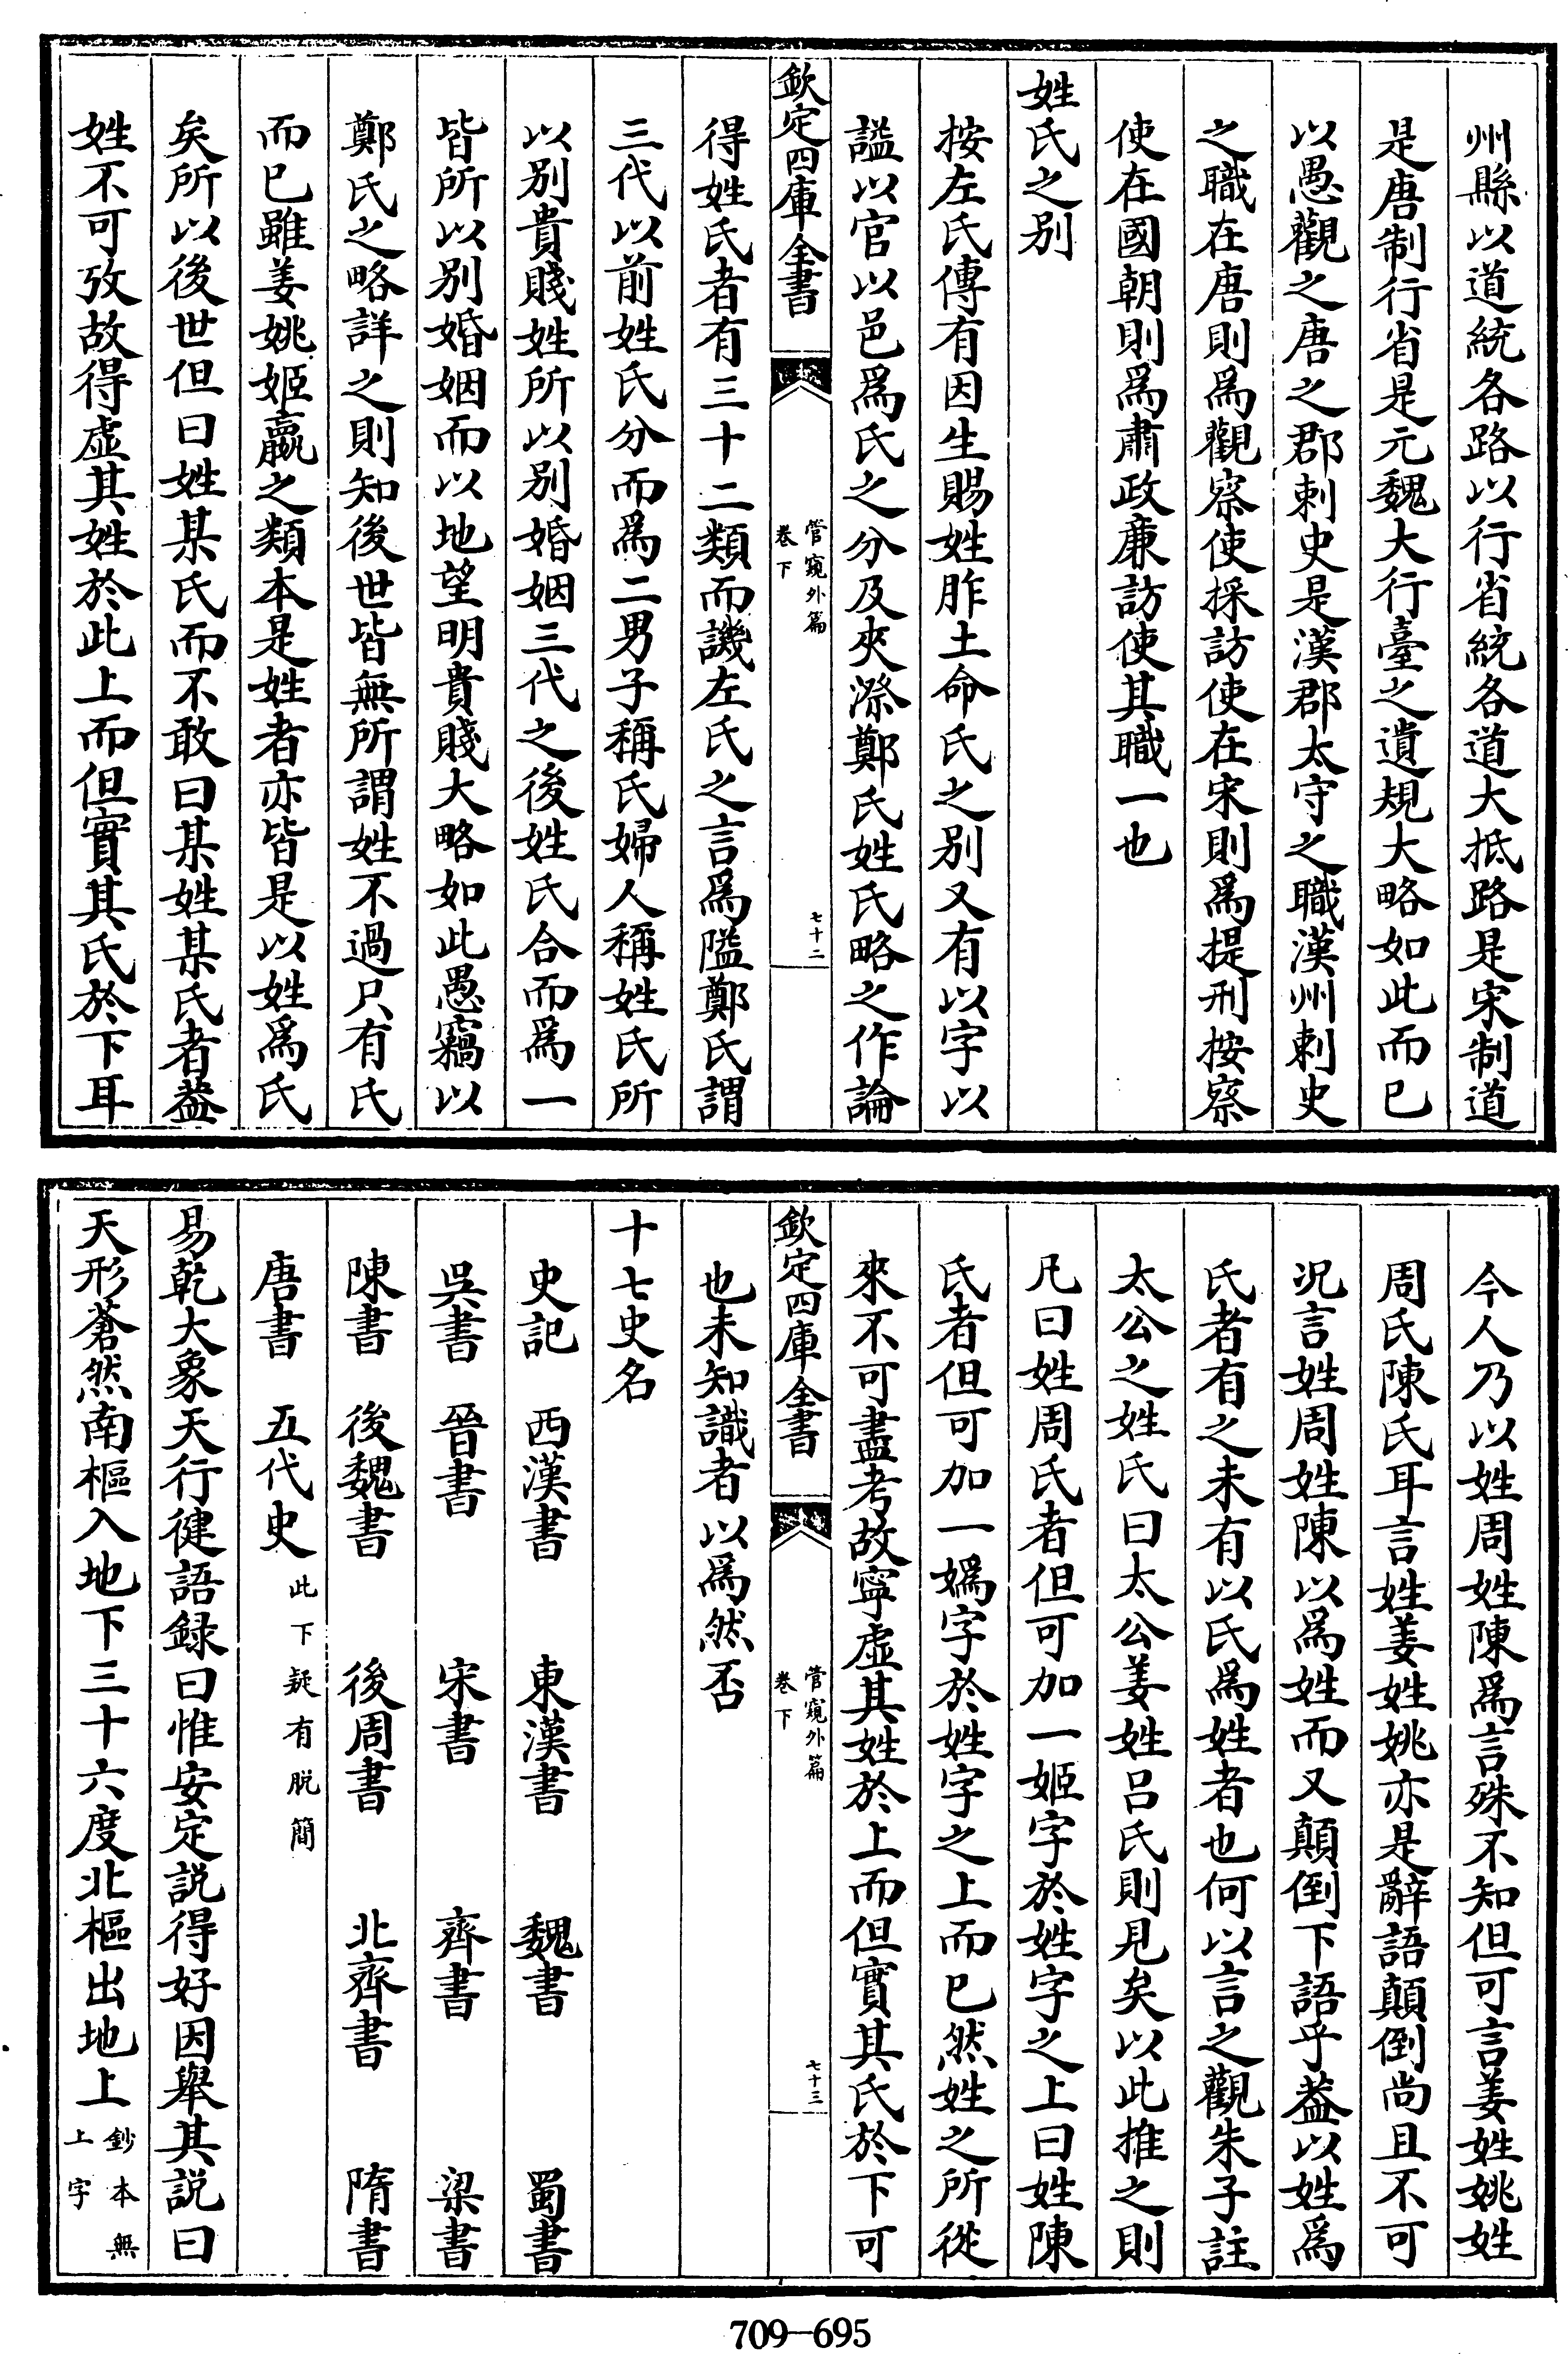 州縣以道統各路以行省統各道大抵路是宋制道
是唐制行省是元魏大行臺之遺規大略如此而已
以愚觀之唐之郡刺史是漢郡太守之職漢州刺史
之職在唐則爲觀察使採訪使在宋則爲提刑按察
使在國朝則爲肅政廉訪使其職一也
姓氏之別
按左氏傳有因生賜姓胙土命氏之別又有以字以
諡以官以邑爲氏之分及夾漈鄭氏姓氏略之作論
欽定四庫全書
管窺外篇
卷下
七十二
得姓氏者有三十二類而譏左氏之言爲隘鄭氏謂
三代以前姓氏分而爲二男子稱氏婦人稱姓氏所
以別貴賤姓所以別婚姻三代之後姓氏合而爲一
皆所以別婚姻而以地望明貴賤大略如此愚竊以
鄭氏之略詳之則知後世皆無所謂姓不過只有氏
而已雖姜姚姬嬴之類本是姓者亦皆是以姓爲氏
矣所以後世但曰姓某氏而不敢曰某姓某氏者葢
姓不可攷故得虛其姓於此上而但實其氏於下耳
今人乃以姓周姓陳爲言殊不知但可言姜姓姚姓
周氏陳氏耳言姓姜姓姚亦是辭語顛倒尚且不可
况言姓周姓陳以爲姓而又顛倒下語乎葢以姓爲
氏者有之未有以氏爲姓者也何以言之觀朱子註
太公之姓氏曰太公姜姓吕氏則見矣以此推之則
凡曰姓周氏者但可加一姬字於姓字之上曰姓陳
氏者但可加一嬀字於姓字之上而已然姓之所從
來不可盡考故寧虛其姓於上而但實其氏於下可
欽定四庫全書
管窺外篇
卷下
七十三
也未知識者以爲然否
十七史名
史記 西漢書 東漢書 魏書 蜀書
吳書 晉書 宋書 齊書 梁書
陳書 後魏書 後周書 北齊書 隋書
唐書 五代史 此下疑有脱簡
易乾大象天行徤語録曰惟安定説得好因舉其説曰
天形蒼然南樞入地下三十六度北樞出地上 鈔本無上字
709—695